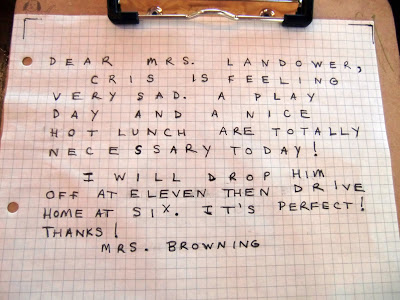 DEAR MRS. LANDOWER,
CRIS IS FEELING
VERY SAD. A PLAY
DAY AND A NICE
HOT LUNCH ARE TOTALLY
NECESSARY TODAY!
I WILL DROP HIM
OFF AT ELEVEN THEN DRIVE
HOME AT SIX. IT'S PERFECT!
THANKS!
MRS. BROWNING